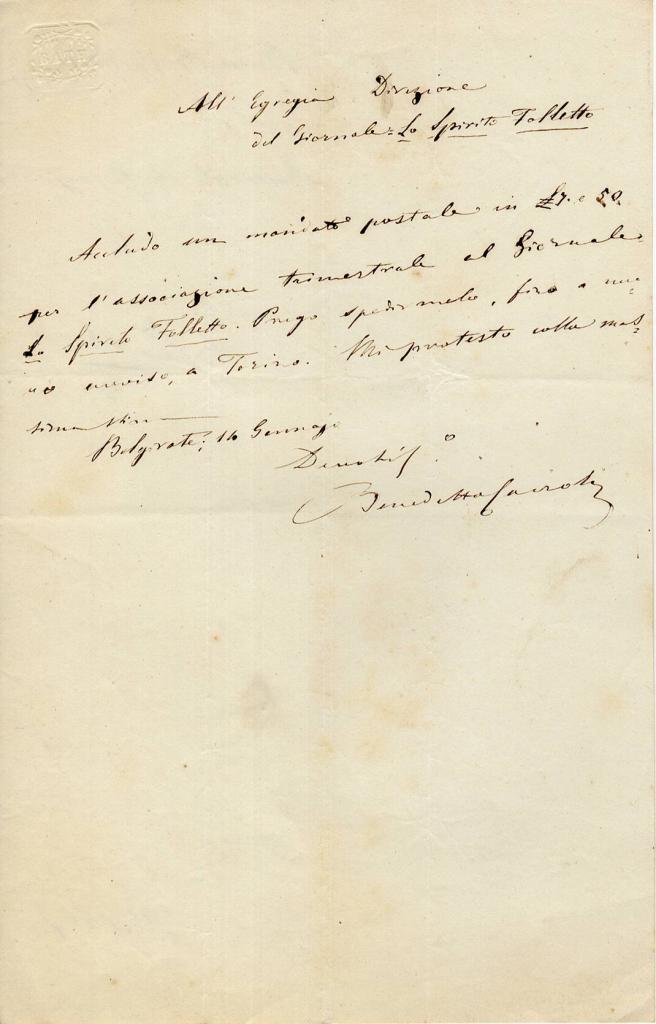 BATH
All' Egregia Divizione
del Giornale = Lo Spirito Folletto
Accludo un mandato postale in £7. e 50.
per l'associazione trimestrale al Giornale
Lo Spirito Folletto. Prego spedirmelo, fino a nuo-
vo avviso, a Torino. Mi protesto colla mas-
sima stima
Belgirate; 16 Gennajo
Devotis.o
Benedetto Cairoli